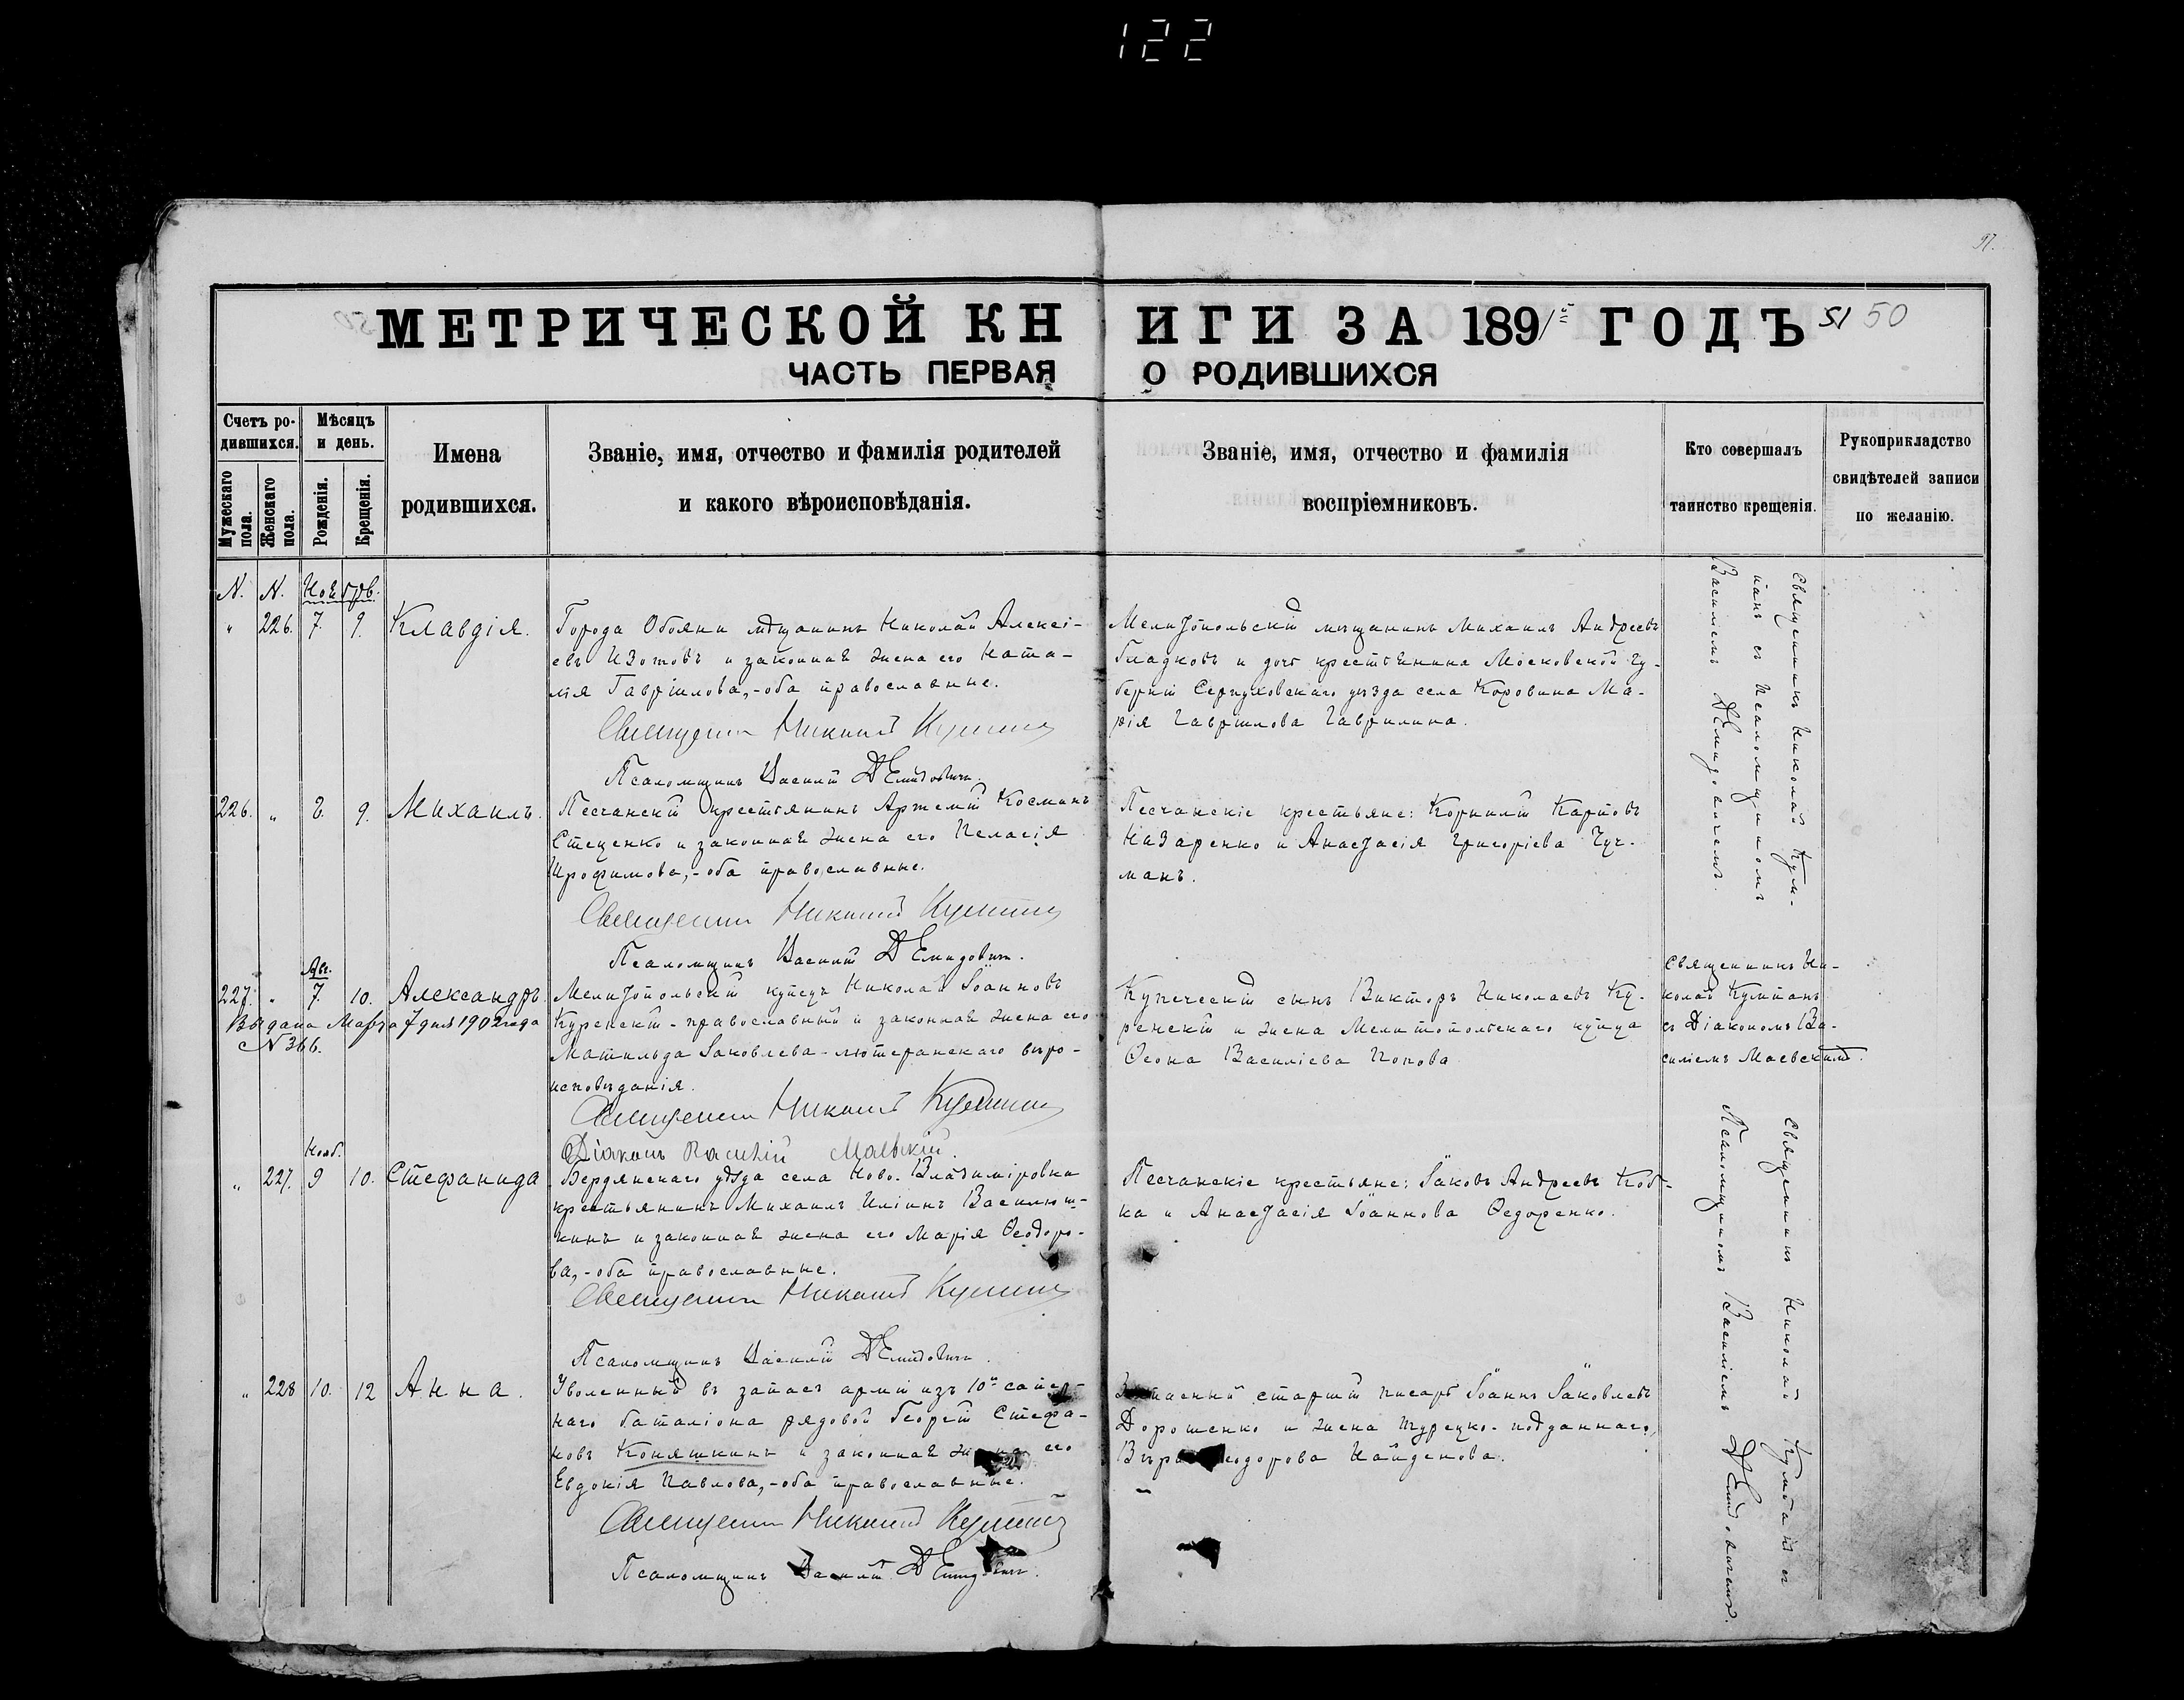 122
97.
МЕТРИЧЕСКОЙ КНИГИ ЗА 1891й ГОДЪ 51 50
ЧАСТЬ ПЕРВАЯ О РОДИВШИХСЯ
Счетъ ро-
дившихся.
Мужескаго пола.
Женскаго пола.
Мѣсяцъ
и день.
Рожденія.
Крещенія.
Имена
родившихся.
Званіе, имя, отчество и фамилія родителей
и какого вѣроисповѣданія.
Званіе, имя, отчество и фамилія
воспріемниковъ.
Кто совершалъ
таинство крещенія.
Рукоприкладство
свидѣтелей записи
по желанію.
N. N. Ноябрь.
" 226. 7. 9. Клавдія.
Города Обояни мѣщанинъ Николай Алексі-
евъ Изотовъ и законная жена его Ната-
лія Гавріилова,-оба православные.
Священникъ Николай
Псаломщикъ Василій Демидовичъ.
Мелитопольскій мѣщанинъ Михаилъ Андреевъ
Гладковъ и дочь крестьянина Московской гу-
берніи Серпуховскаго уѣзда села Коровина Ма-
рія Гавріилова Гаврилина.
Священникъ Николай
съ Псаломщикомъ
Василіемъ Демидовичемъ.
226. " 8. 9. Михаилъ.
Песчанскій крестьянинъ Артемій Косминъ
Стеценко и законная жена его Пелагія
Трофимова,-оба православные.
Священникъ Николай
Псаломщикъ Василій Демидовичъ.
Песчанскіе крестьяне: Корнилій Карповъ
Назаренко и Анастасія Григоріева Чуч-
манъ.
Авг.
227. " 7. 10. Александръ.
Выдана Марта 7 дня 1902 года
N 366.
Мелитопольскій купецъ Николай Іоанновъ
Куренскій-православный и законная жена его
Матильда Іаковлева-лютеранскаго вѣро-
исповѣданія.
Священникъ Николай
Діаконъ Василій Маевскій.
Купеческій сынъ Викторъ Николаевъ Ку-
ренскій и жена Мелитопольскаго купца
Ѳеона Василіева Попова
Священникъ Ни-
колай
съ Діакономъ Ва-
силіемъ Маевскимъ.
Нояб.
" 227. 9 10. Стефанида
Бердянскаго уѣзда села Ново-Владиміровки
крестьянинъ Михаилъ Иліинъ Василюш-
кинъ и законная жена его Марія Ѳеодоро-
ва,-оба православные.
Священникъ Николай
Псаломщикъ Василій Демидовичъ.
Песчанскіе крестьяне: Іаковъ Андреевъ Коб-
ка и Анастасія Іоаннова Ѳедоренко.
Священникъ Николай съ
Псаломщикомъ Василіемъ Демидовичемъ.
" 228 10. 12 Анна.
Уволенный въ запасъ арміи изъ 10го сапер-
наго баталіона рядовой Георгій Стефа-
новъ Коняшкинъ и законная жена его
Евдокія Павлова,-оба православные.
Священникъ Николай
Псаломщикъ Василій Демидовичъ.
старшій писарь Іоаннъ Іаковлевъ
Дорошенко и жена турецко-подданнаго,
Вѣра Ѳеодорова Найденова.